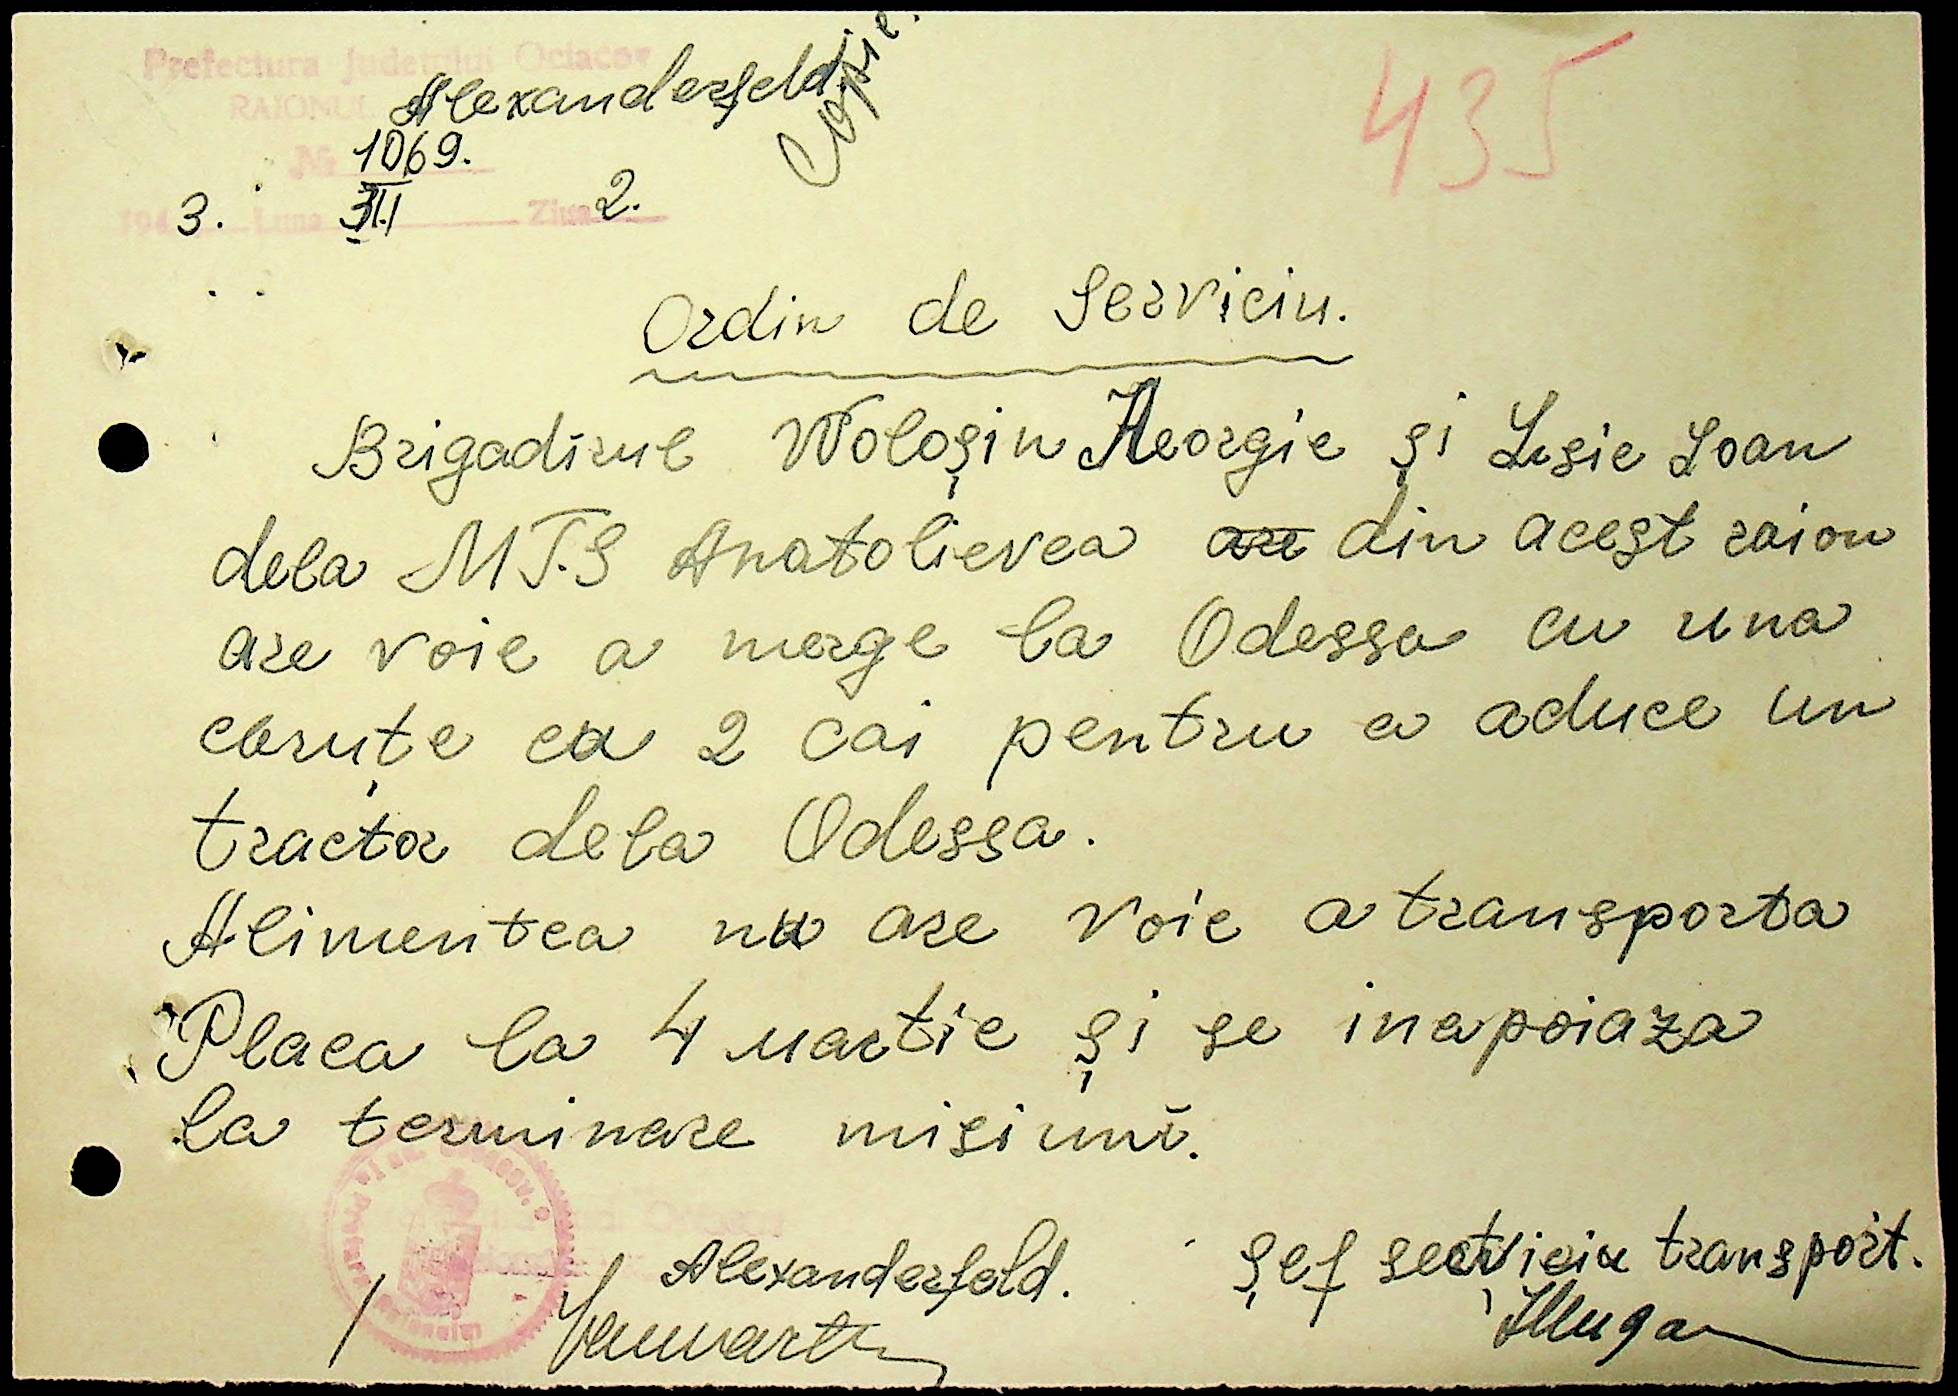 Prefectura Judetului Ociacov
RAIONUL Alexanderfeld
Copie.
435
№ 1069.
194 3. Luna III Ziua 2.
Ordin de Serviciu.
Brigadirul Woloșin Heorgie și Lisie Ioan
dela M.T.S Anatolievca are din acest raion
are voie a merge la Odessa cu una
căruțe cu 2 cai pentru a aduce un
tractor dela Odessa.
Alimentea nu are voie a transporta
Placa la 4 martie și se inapoiaza
la terminare misiunĭ.
Alexanderfeld.
Șef serviciu transport.